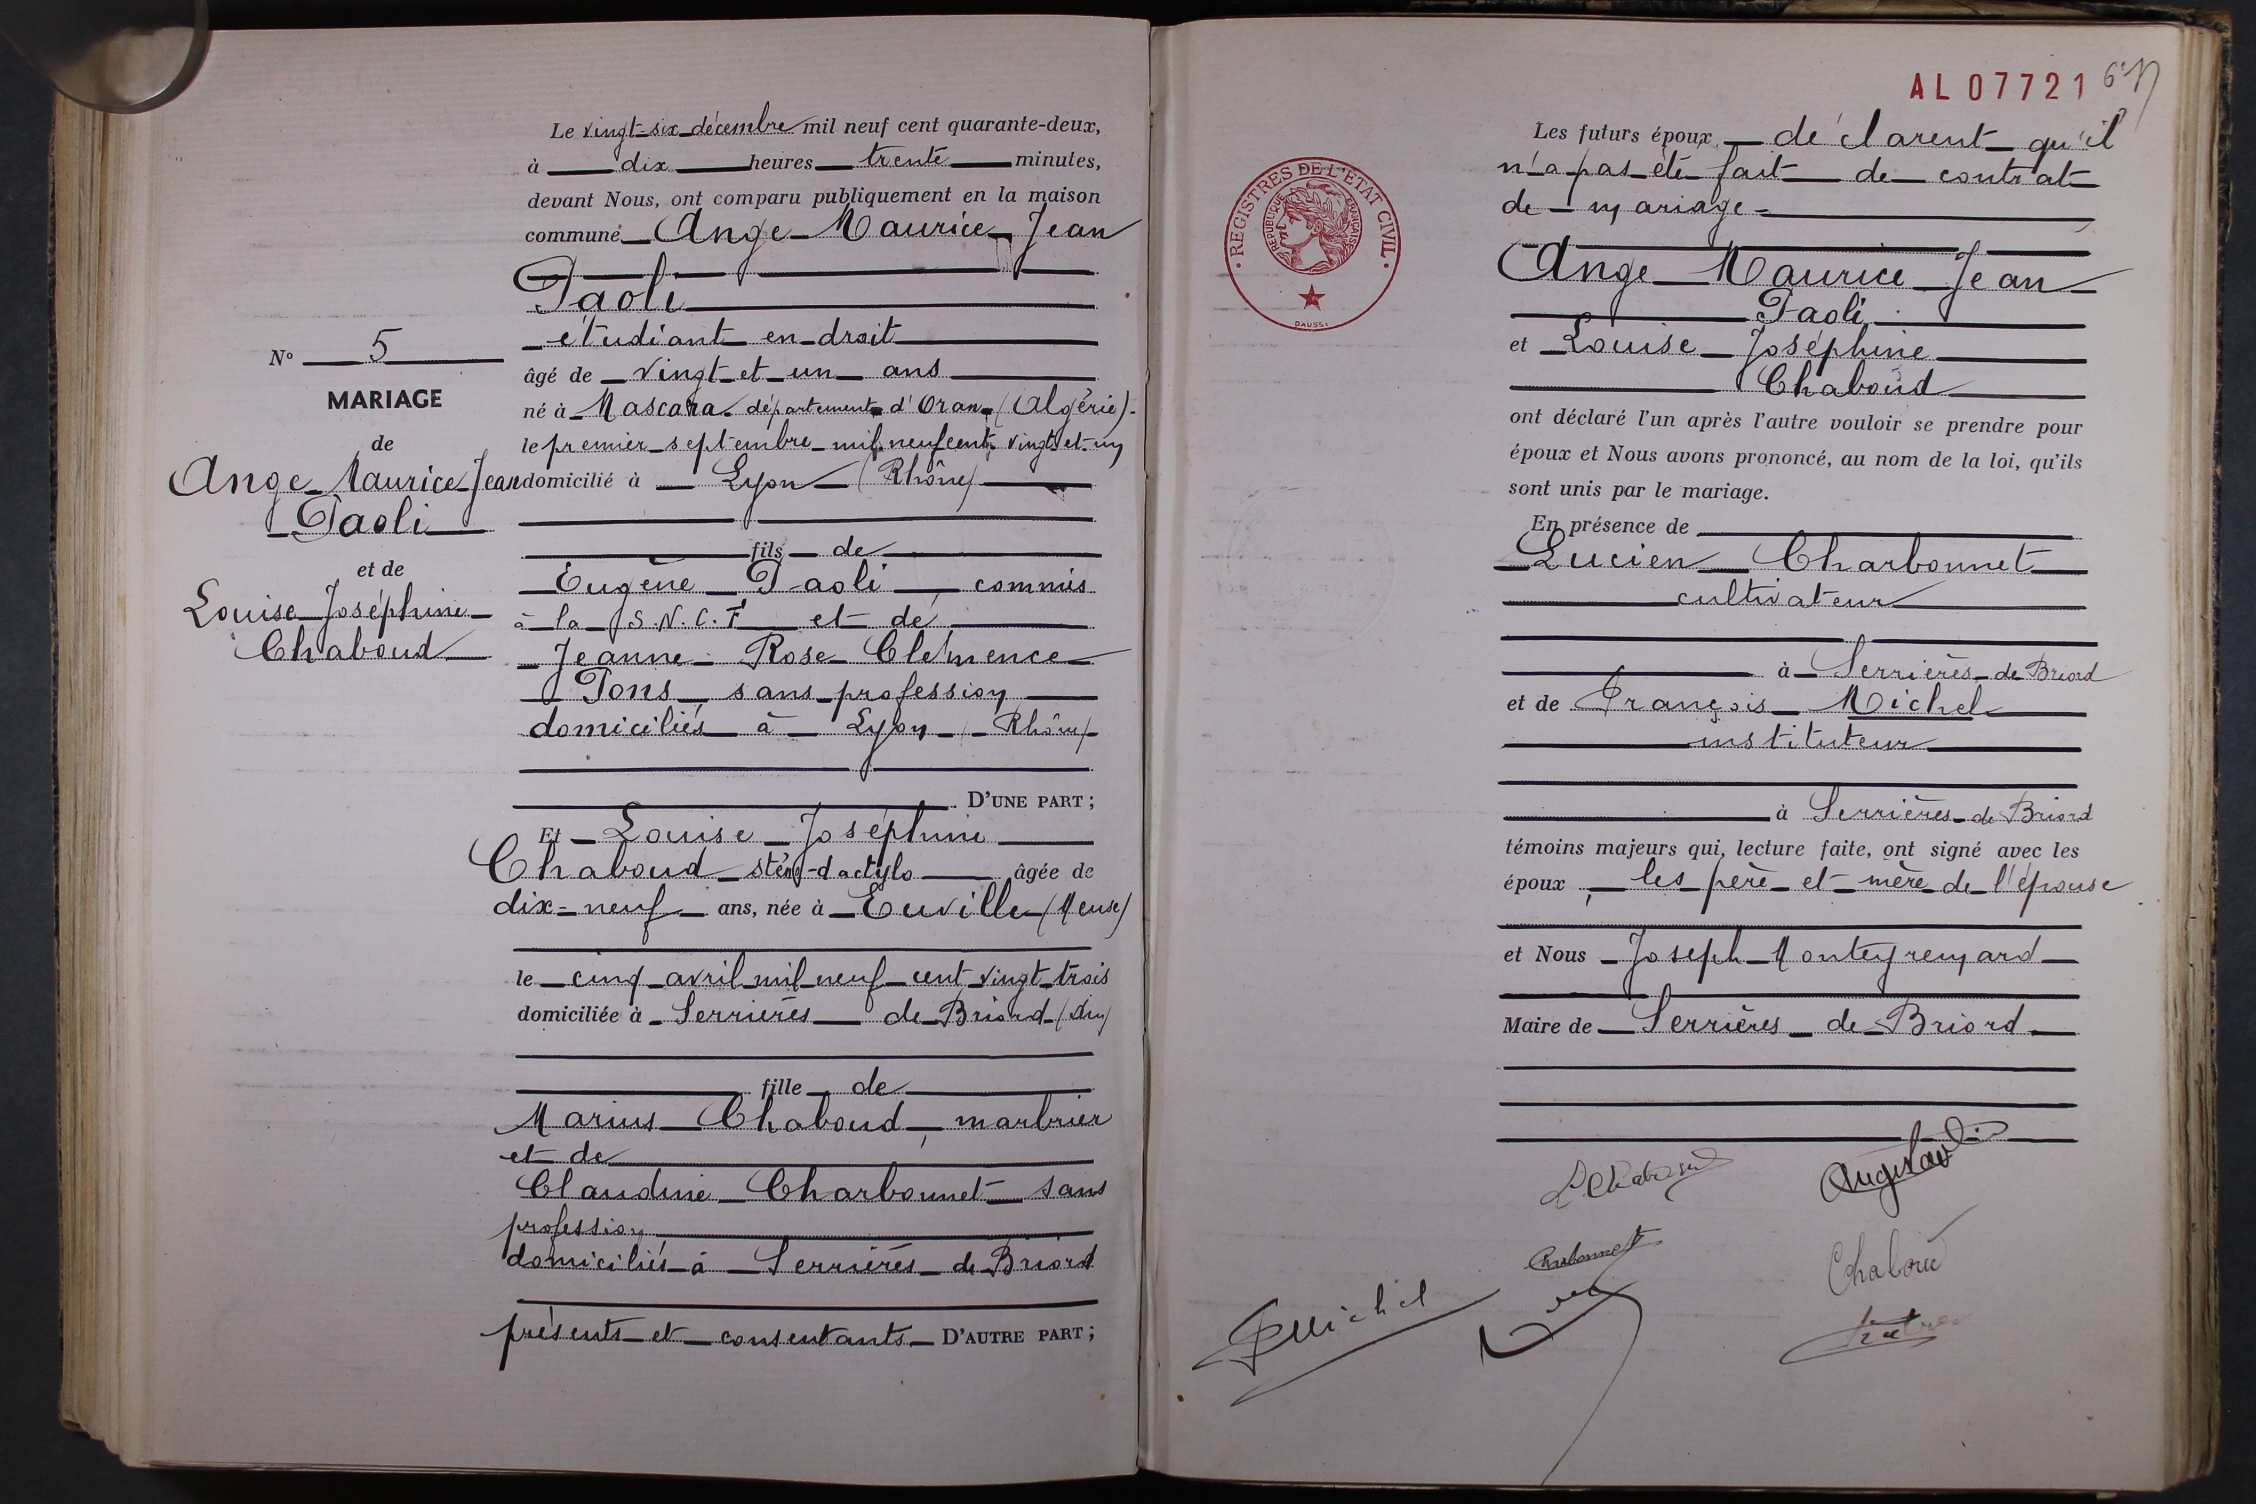 Le vingt-six décembre mil neuf cent quarante-deux,
à dix heures trente minutes,
devant Nous, ont comparu publiquement en la maison
commune Ange Maurice Jean
Paoli
étudiant en droit
âgé de vingt et un ans
né à Mascara département d'Oran (Algérie)
le premier septembre mil neuf cent vingt et un
domicilié à Lyon (Rhône)
fils de
Eugène Paoli, commis
à la S.N.C.F et de
Jeanne Rose Clémence
Pons sans profession
domiciliés à Lyon (Rhône)
D'UNE PART ;
Et Louise Joséphine
Chaboud sténo-dactylo âgée de
dix-neuf ans, née à Euville (Meuse)
le cinq avril mil neuf cent vingt trois
domiciliée à Serrières de Briord (Ain)
fille de
Marius Chaboud, marbrier
et de
Claudine Charbonnet sans
profession
domiciliés à Serrières de Briord
présents et consentants D'AUTRE PART ;
N° 5
MARIAGE
de
Ange Maurice Jean
Paoli
et de
Louise Joséphine
Chaboud
AL 07721
REGISTRES DE L'ÉTAT CIVIL
RÉPUBLIQUE FRANÇAISE
DAUSSY
Les futurs époux déclarent qu'il
n'a pas été fait de contrat
de mariage
Ange Maurice Jean
Paoli
et Louise Joséphine
Chaboud
ont déclaré l'un après l'autre vouloir se prendre pour
époux et Nous avons prononcé, au nom de la loi, qu'ils
sont unis par le mariage.
En présence de
Lucien Charbonnet
cultivateur
à Serrières de Briord
et de François Michel
instituteur
à Serrières de Briord
témoins majeurs qui, lecture faite, ont signé avec les
époux, les père et mère de l'épouse
et Nous Joseph Monteyremard
Maire de Serrières de Briord
L Chaboud
Ange Paoli
Charbonnet
Chaboud
F Michel